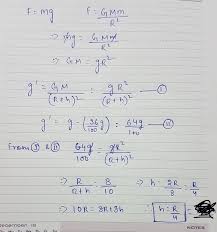 F = mg    F = GMm/R²
⇒ mg = GMm/R²
⇒ GM = gR²
g' = GM/(R+h)² = gR²/(R+h)² — I
g' = g - (36g/100) = 64g/100 — II
From I & II 64g/100 = gR²/(R+h)²
⇒ R/R+h = 8/10 ⇒ h = 2R/8 = R/4
⇒ 10R = 8R+8h ⇒ h = R/4
NOTES